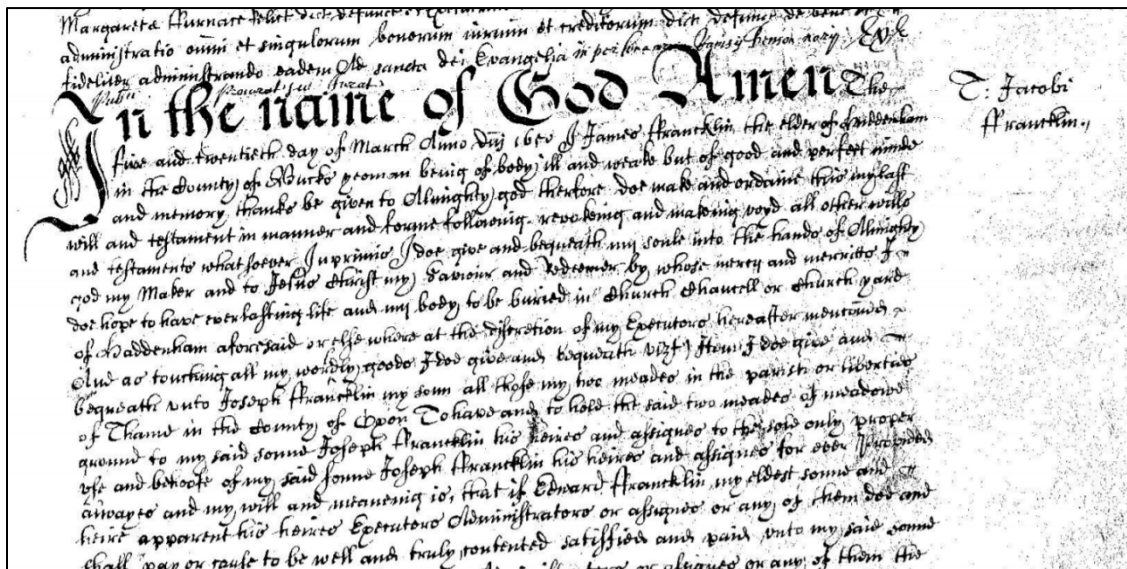 Margareta ffurnace Relict dict defuncti et Executoris
administratio omni et singulorum bonorum iurium et creditorum dict defuncti de bene et
fideliter administrando eadem Ad sancta dei Evangelia in
In the name of God Amen The
T: Jacobi
ffrancklin.
five and twentieth day of March Anno dni 1650 I James ffrancklin the elder of Haddenham
in the County of Bucks yeoman being of body ill and weake but of good and perfect minde
and memory thanks be given to Almighty god therfore doe make and ordaine this my last
will and testament in manner and forme following revokeing and makeing voyd all other wills
and testaments whatsoever Inprimis I doe give and bequeath my soule into the hands of Almighty
god my Maker and to Jesus Christ my Saviour and Redeemer by whose mercy and merritts I
doe hope to have everlasting life and my body to be buried in Church Chancell or Church yard
of Haddenham aforesaid or else where at the discretion of my Executors hereafter mentioned
And as touching all my wordly goods I doe give and bequeath vizt Item I doe give and
bequeath unto Joseph ffrancklin my sonn all those my two meades in the parish or liberties
of Thame in the County of Oxon To have and to hold the said two meades of meadowe
ground to my said sonne Joseph ffrancklin his heires and assignes to the sole only proper
use and behoofe of my said sonne Joseph ffrancklin his heires and assignes for ever Provided
alwayes and my will and meaneing is, that if Edward ffrancklin my eldest sonne and
heire apparent his heires Executors Administrators or assignes or any of them doe and
shall pay or cause to be well and truly contented satisfied and paid unto my said sonne
or assignes or any of them the